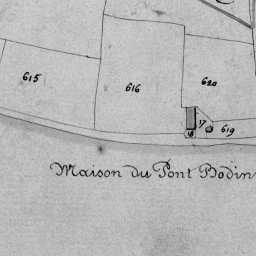 615
616
620
17
619
18
Maison du Pont Bodin